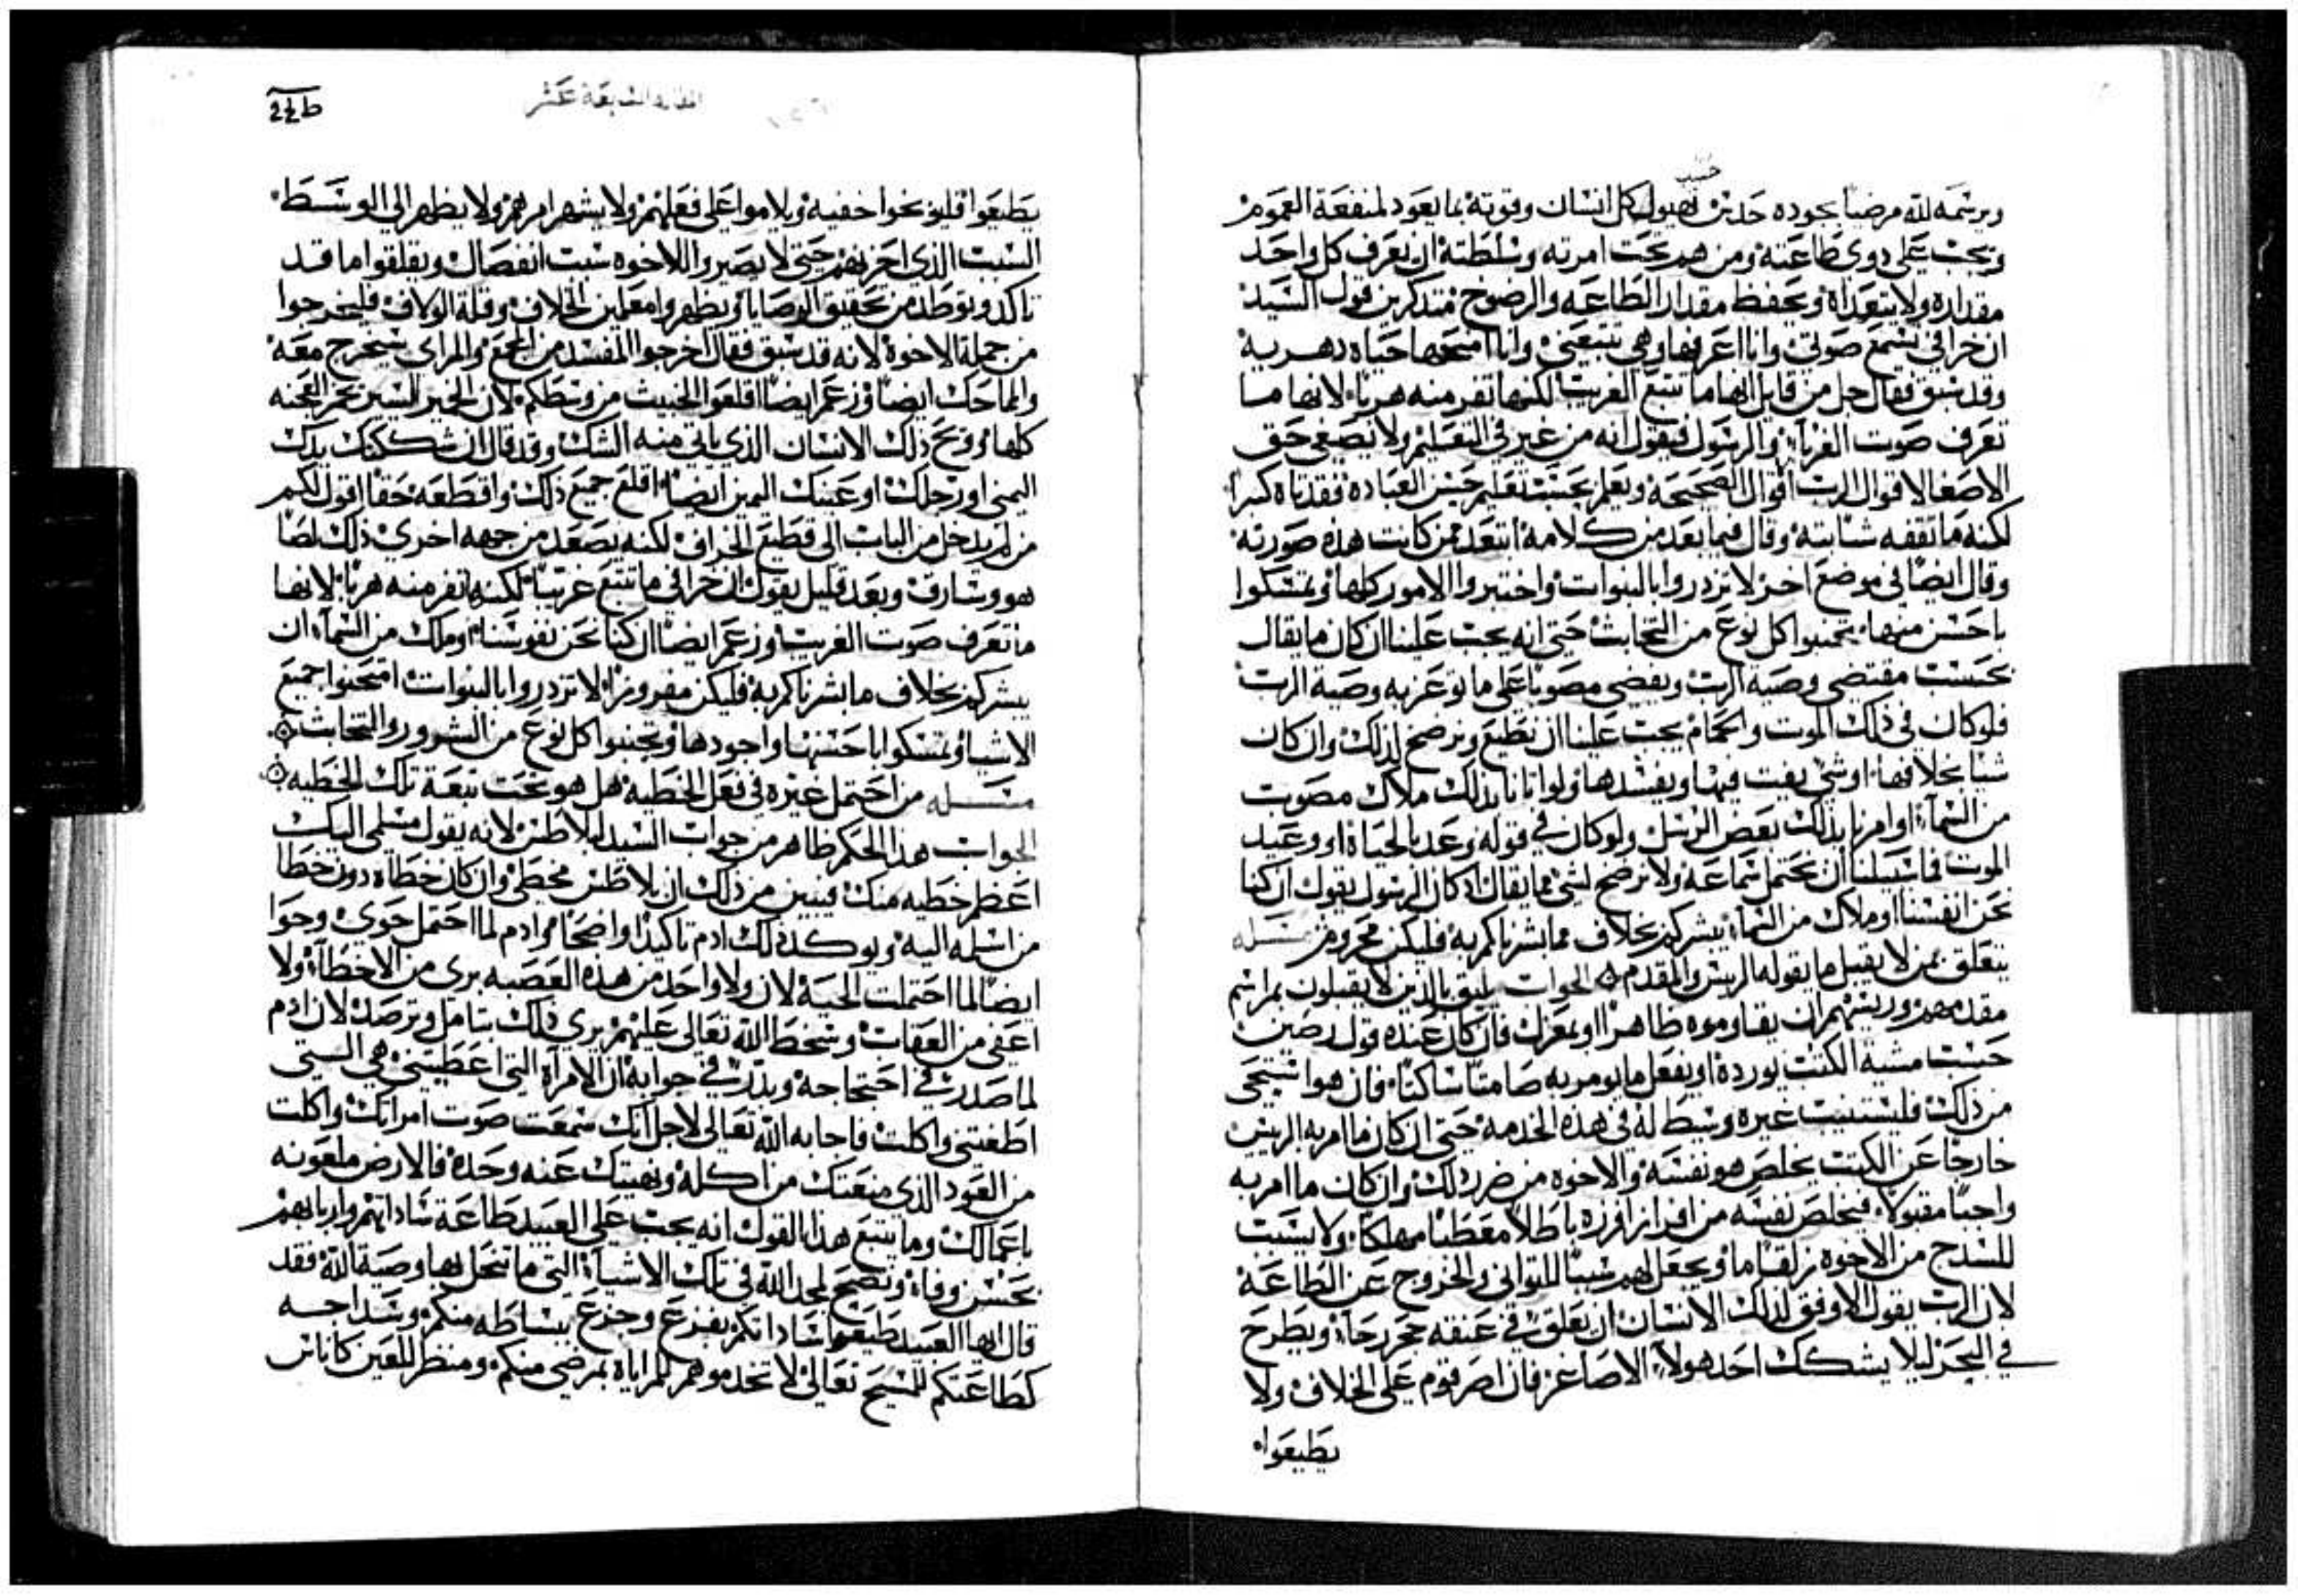 حسب
ويرسمه لله مرضيا بجوده حدس قبول كل انسان وقوته بما يعود لمنفعة العموم
ويجب على دوي طاعته ومن هم تحت امرته وسلطته ان يعرف كل واحد
مقداره ولا يتعداه ويحفظ مقدار الطاعه والرضوخ متدكرين قول السيد
ان خرافي تسمع صوتي وانا اعرفها وهي تتبعني وانا امنحها حياه دهريه
وقد سبق فقال جل من قايل انها ما تتبع الغريب لكنها تفر منه هربا لانها ما
تعرف صوت الغربآ والرسول فيقول انه من غير في التعليم ولا يصغي حق
الاصغا لاقوال الرب اقوال الصحيحة ويعلم بحسب تعليم حسن العباده فقد تاه كبرا
لكنه ما تفقه شيا بتة وقال فيما بعد من كلامه ابتعد ممن كانت هذه صورته
وقال ايضا في موضع اخر لا تزدروا بالنبوات واختبروا الامور كلها وتمسكوا
باحسن منها تجنبوا كل نوع من التخابث حتى انه يجب علينا ان كان ما يقال
بحسب مقتضى وصيه الرب ويفضي مصوبا على ما توعز به وصية الرب
فلو كان في ذلك الموت والحمام يجب علينا ان نطيع ونرضخ لذلك وان كان
شيا بخلافها اوشي يفت فيها ويفسدها ولو اتانا بذلك ملاك مصوت
من السمآ او امرنا بذلك بعض الرسل ولو كان في قوله وعد بالحياة او وعيد
الموت فما سبيلنا ان نحتمل سماعه ولا نرضخ لشي مما يقال اد كان الرسول يقول ان كنا
نحن انفسنا او ملاك من السمآ يبشركم بخلاف مما بشرناكم به فليكن محروم مسله
يتعلق بمن لا يقبل ما يقوله الريس والمقدم الجواب يليق بالذين لا يقبلون بمراسم
مقدمهم وريسهم ان يقاوموه ظاهرا او بمعزل فان كان عنده قول رصين
حسب مشية الكتب يورده او يفعل ما يومر به صامتا ساكتا فان هو استحى
من ذلك فليستنيب غيره وسيط له في هذه الخدمه حتى ان كان ما امر به الريس
خارجا عن الكتب يخلص هو نفسه والاخوه من ضرر ذلك وان كان ما امر به
واجبا مقبولا فيخلص نفسه من افراز افرزه باطلا معطبا مهلكا ولا يسبب
للسدج من الاخوه زلقا ما ويجعل لهم سببا للتواني والخروج عن الطاعة
لان الرب يقول الاوفق لذلك الانسان ان يعلق في عنقه حجر رحا ويطرح
في البحر ليلا يشكك احد هولآ الاصاغر فان اصر قوم على الخلاف ولا
يطيعوا
المقاله السابعة عشر
يطيعوا فليوبخوا خفيه ويلاموا على فعلهم ولا يشهر امرهم ولا يظهر الي الوسط
السبب الذي احزنهم حتى لا يصيروا للاخوه سبب انفصال ويقلقوا ما قد
تاكد وتوطد من تحقيق الوصايا ويظهروا معلمين الخلاف وقلة الولاف فليخرجوا
من جملة الاخوة لانه قد سبق فقال اخرجوا المفسد من المجمع والمراى سيخرج معه
والماحك ايضا وزعم ايضا اقلعوا الخبيث من وسطكم لان الخمير اليسير تخمر العجنه
كلها وويح ذلك الانسان الذي ياتي منه الشك وقد قال ان شككتك يدك
اليمني او رجلك او عينك اليمين ايضا اقلع جميع ذلك واقطعه حقا اقول لكم
من لم يدخل من الباب الى قطيع الخراف لكنه يصعد من جهه اخرى ذلك لصا
هو وسارق وبعد قليل يقول ان خرافي ما تتبع غريبا لكنها تفر منه هربا لانها
ما تعرف صوت الغريب وزعم ايضا ان كنا نحن نفوسنا او ملك من السمآ ان
يبشركم بخلاف ما بشرناكم به فليكن مفروزا لا تزدروا بالنبوات امتحنوا جميع
الاشيا وتمسكوا باحسنها واجودها وتجنبوا كل نوع من الشرور والتخابث
مسله من احتمل غيره في فعل الخطيه هل هو تحت تبعة تلك الخطيه
الجواب هذا الحكم ظاهر من جواب السيد لبيلاطس لانه يقول مسلمي اليك
اعظم خطيه منك فيبين من ذلك ان بيلاطس مخطي وان كان خطاه دون خطا
من اسلمه اليه ويوكد ذلك ادم تاكيدا واضحا وادم لما احتمل حوى وحوا
ايضا لما احتملت الحية لان ولا واحد من هذه العصبه برى من الاخطآ ولا
اعفى من العقاب وسخط الله تعالى عليهم يرى ذلك بتامل وترصد لان ادم
لما صدر في احتجاجه ويدر في جوابه ان الامرآة التي اعطيتني هي السبي
اطغتني واكلت فاجابه الله تعالى لاجل انك سمعت صوت امراتك واكلت
من العود الذي منعتك من اكله ونهيتك عنه وحدة فالارض ملعونه
باعمالك وما يتبع هذا القول انه يجب على العبيد طاعة ساداتهم واربابهم
بحسن وفا ونصح لمجد الله في تلك الاشيآ التي ما تنحل بها وصية الله فقد
قال ايها العبيد اطيعوا ساداتكم بفزع وجزع ببساطه منكم وسداجه
كطاعتكم للمسيح تعالى لا تخدموهم للمراياة بمرضي منكم ومنظر للعين كاناس